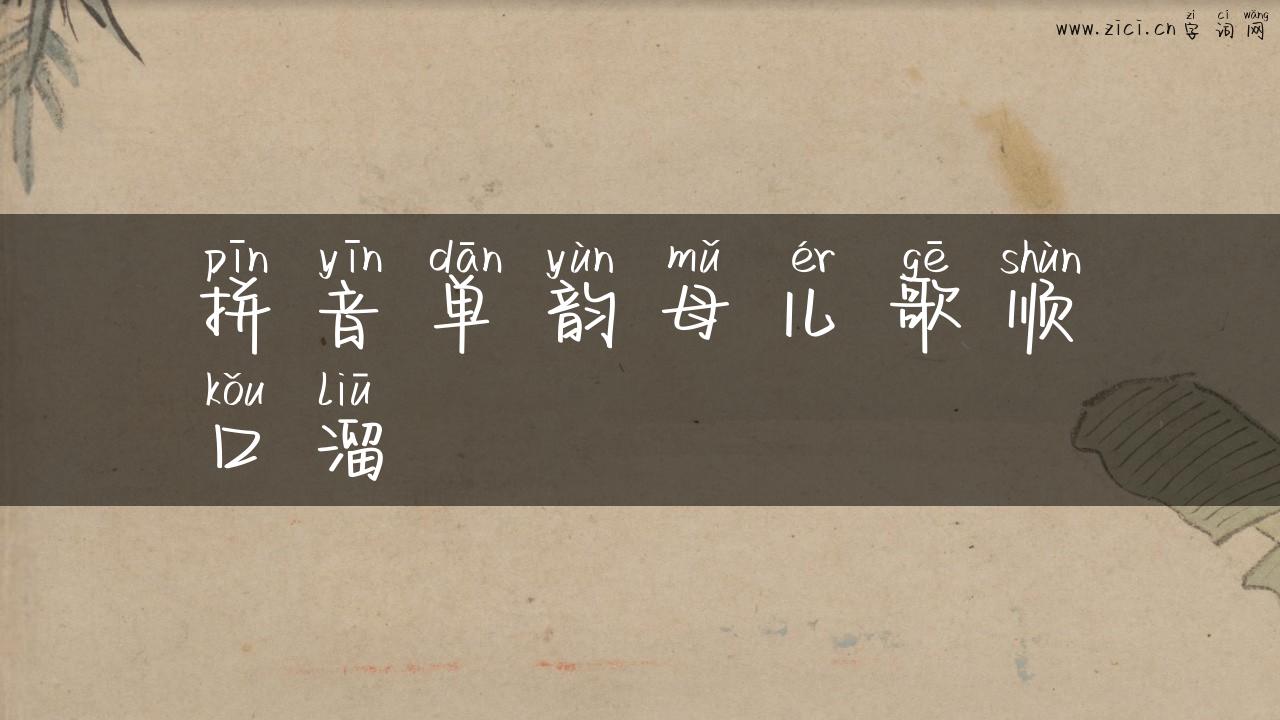 zì cí wǎng
www.zici.cn 字词网
pīn yīn dān yùn mǔ ér gē shùn
拼音单韵母儿歌顺
kǒu liū
口溜